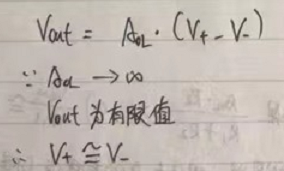 Vout = AOL · (V+ - V-)
∵ AOL → ∞
Vout 为有限值
∴ V+ ≅ V-